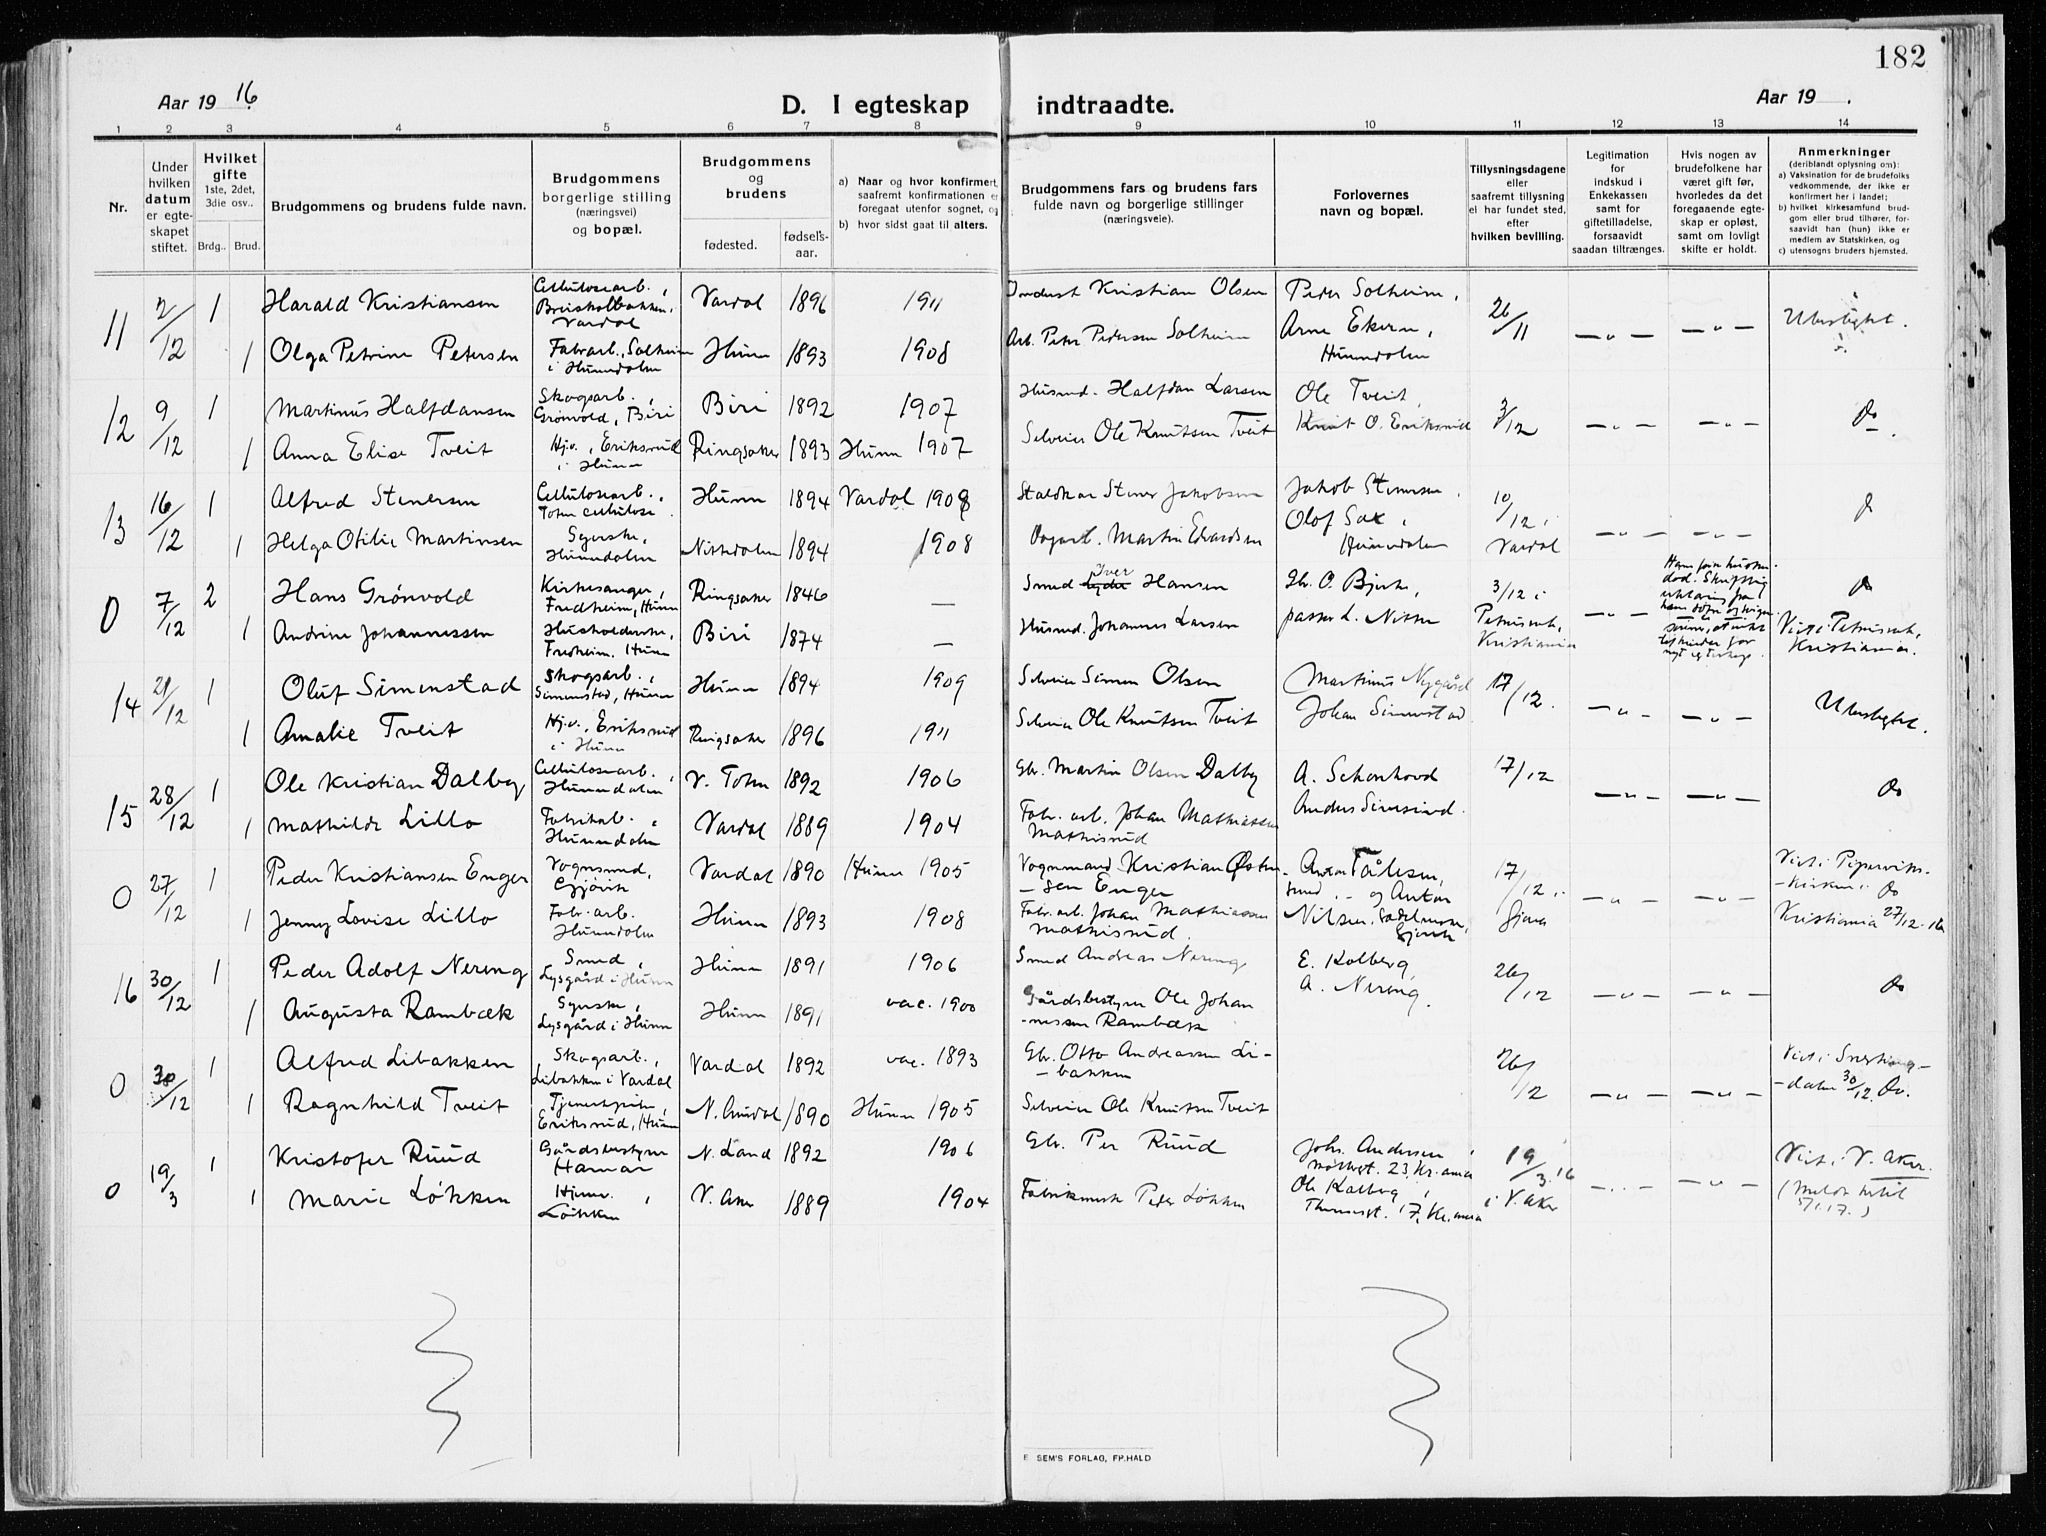 182
Aar 19 16.
D. I egteskap indtraadte.
Aar 19 .
1 2 3 4 5 6 7 8 9 10 11 12 13 14
Nr.
Under hvilken datum er egteskapet stiftet.
Hvilket gifte
1ste, 2det, 3die osv..
Brdg.. Brud.
Brudgommens og brudens fulde navn.
Brudgommens borgerlige stilling (næringsvei) og bopæl.
Brudgommens og brudens
fødested.
fødsels-aar.
a) Naar og hvor konfirmert, saafremt konfirmationen er foregaat utenfor sognet, og
b) hvor sidst gaat til alters.
Brudgommens fars og brudens fars
fulde navn og borgerlige stillinger
(næringsveie).
Forlovernes navn og bopæl.
Tillysningsdagene eller saafremt tillysning ei har fundet sted, efter hvilken bevilling.
Legitimation for indskud i Enkekassen samt for giftetilladelse, forsaavidt saadan tiltrænges.
Hvis nogen av brudefolkene har været gift før, hvorledes da det foregaaende egteskap er opløst, samt om lovligt skifte er holdt.
Anmerkninger
(deriblandt oplysning om):
a) Vaksination for de brudefolks vedkommende, der ikke er konfirmert her i landet;
b) hvilket kirkesamfund brudgom eller brud tilhører, forsaavidt han (hun) ikke er medlem av Statskirken, og
c) utensogns bruders hjemsted.
11 2/12 1 Harald Kristiansen Cellulosearb., Vardal Vardal 1896 1911 Kristian Olsen Peder Solheim, 26/11 — „ — — „ — Uberligtet.
1 Olga Petrine Petersen Fabrarb., Solheim i Hunndalen Hunn 1893 1908 Arb. Peter Pedersen Solheim Arne Ekern, Hunndalen
12 9/12 1 Martinus Halfdansen Skogsarb., Grønvold, Biri Biri 1892 1907 Husmd. Halfdan Larsen Ole Tveit, 3/12 — „ — — „ — Do.
1 Anna Elise Tveit Hj.v., Eriksrud i Hunn Ringsaker 1893 Hunn 1907 Selveier Ole Knutsen Tveit Knut O. Eriksrud
13 16/12 1 Alfred Stenersen Cellulosearb., Toten cellulose Hunn 1894 Vardal 1908 Stener Jakobsen Jakob Stenersen. 10/12 i Vardal — „ — — „ — Do
1 Helga Otilie Martinsen Syerske, Hunndalen Nittedalen 1894 1908 Martin Edvardsen Olof Sax, Hunndalen
0 7/12 2 Hans Grønvold Kirkesanger, Fredheim, Hunn Ringsaker 1846 — Smed Iver Hansen Gbr. O. Bjerke, 3/12 i Petruskk, Kristiania — „ — Do
1 Andrine Johannessen Husholderske, Fredheim, Hunn Biri 1874 — Husmd. Johannes Larsen pastor L. Viet i Petruskk, Kristiania.
14 21/12 1 Oluf Simenstad Skogsarb., Simenstad, Hunn Hunn 1894 1909 Selveier Simen Olsen Martinus Nygård 17/12. — „ — — „ — Uberligtet.
1 Amalie Tveit Hj.v., Eriksrud i Hunn Ringsaker 1896 1911 Selveier Ole Knutsen Tveit Johan Simenstad
15 28/12 1 Ole Kristian Dalby Cellulosearb., Hunndalen V. Toten 1892 1906 Gbr. Martin Olsen Dalby A. Schonhovd 17/12 — „ — — „ — Do
1 Mathilde Lillo Fabrikarb., Hunndalen Vardal 1889 1904 Fabr. arb. Johan Mathiassen Mathisrud Anders
0 27/12 1 Peder Kristiansen Enger Vognsmed, Gjøvik Vardal 1890 Hunn 1905 Vognmand Kristian Østen-sen Enger Anton Tålesen, smed, og Anton 17/12 i Gjøvik — „ — — „ — Viet i Piperviks-kirken i Do
1 Jenny Lovise Lillo Fabr. arb. Hunndalen Hunn 1893 1908 Fabr. arb. Johan Mathiassen Mathisrud. Nilsen, Sadelmaker, Gjøvik Kristiania 27/12-16
16 30/12 1 Peder Adolf Nereng Smed, Lysgård i Hunn Hunn 1891 1906 Smed Andreas Nereng E. Kolberg, 26/12 — „ — — „ — Do
1 Augusta Rambæk Syerske, Lysgård i Hunn Hunn 1891 vac. 1900 Gårdsbestyrer Ole Johan-nessen Rambæk A. Nereng.
0 30/12 1 Alfred Libakken Skogsarb., Libakken i Vardal Vardal 1892 vac. 1893 Gbr. Otto Andreassen Li-bakken 26/12 — „ — — „ — Viet i Snerting-dalen 30/12. Do.
1 Ragnhild Tveit Tjenestepike, Eriksrud, Hunn N. Aurdal 1890 Hunn 1905 Selveier Ole Knutsen Tveit
0 19/3 1 Kristofer Ruud Gårdsbestyrer Hamar N. Land 1892 1906 Gbr. Per Ruud Johs. Andersen, 23, Kr.ania 19/3.16 i V. Aker — „ — — „ — Viet i V. Aker.
1 Marie Løkken Hjemv., Løkken V. Aker 1889 1904 Peder Løkken Ole Kolberg, 17, Kr.ania (Meldt hertil 5/1.17.)
E SEM'S FORLAG, FR.HALD